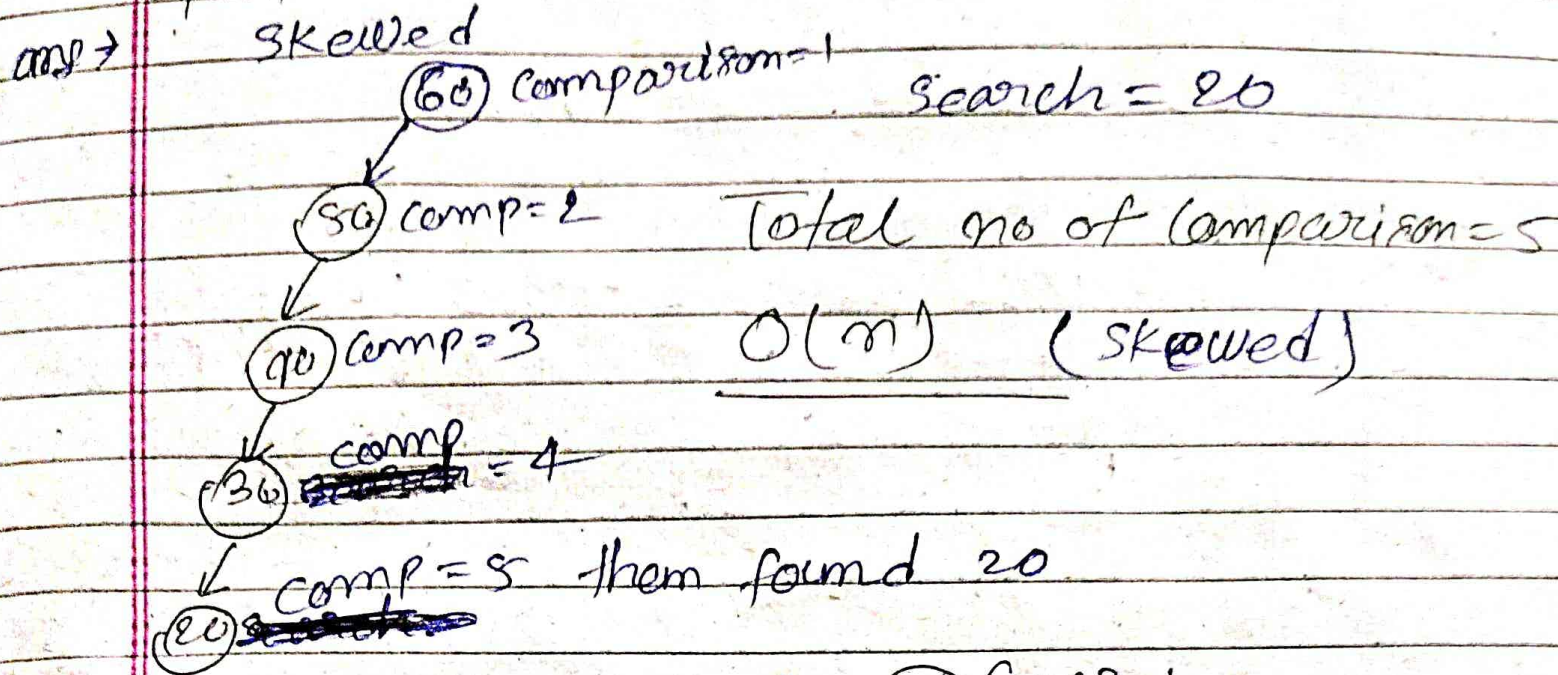 ans → skewed
60 comparison=1 search = 20
50 comp=2 Total no of Comparison=5
40 Comp=3 O(n) (skewed)
30 comp = 4
comp = 5 then found 20
20